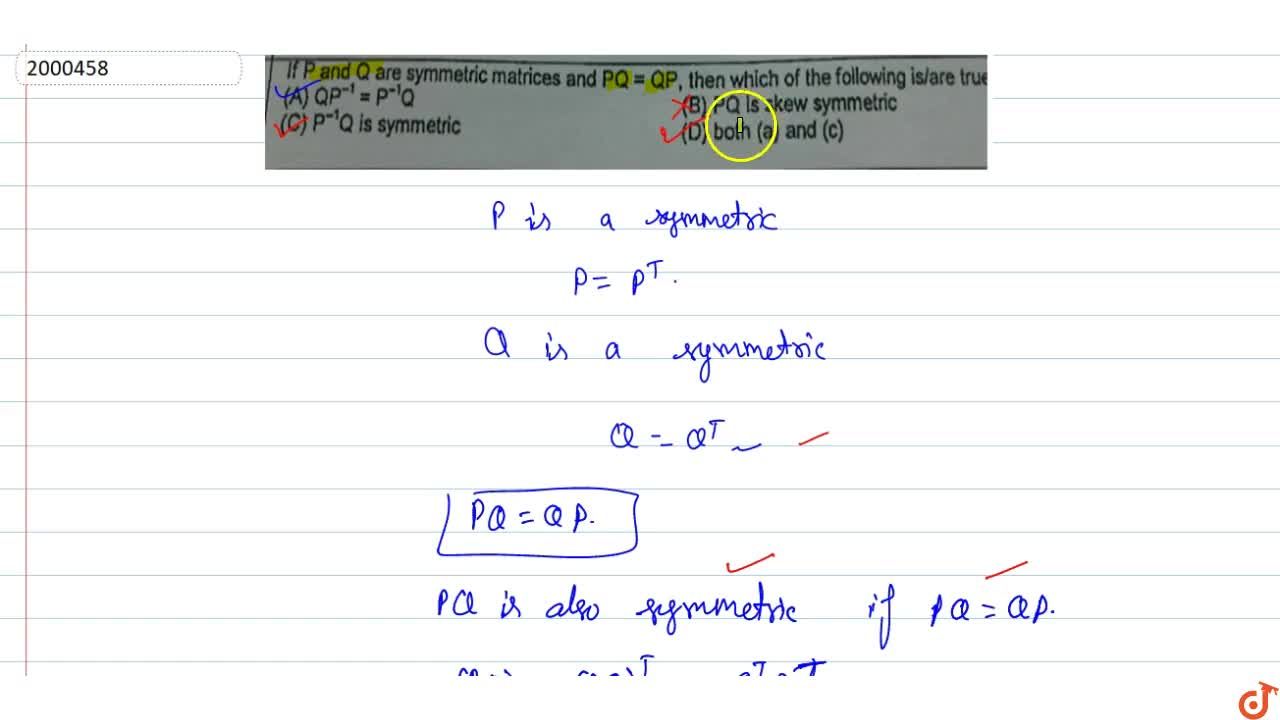 2000458
If P and Q are symmetric matrices and PQ = QP, then which of the following is/are true
(A) QP⁻¹ = P⁻¹Q (B) PQ is skew symmetric
(C) P⁻¹Q is symmetric (D) both (a) and (c)
P is a symmetric
P = Pᵀ.
Q is a symmetric
Q = Qᵀ
PQ = QP.
PQ is also symmetric if PQ = QP.